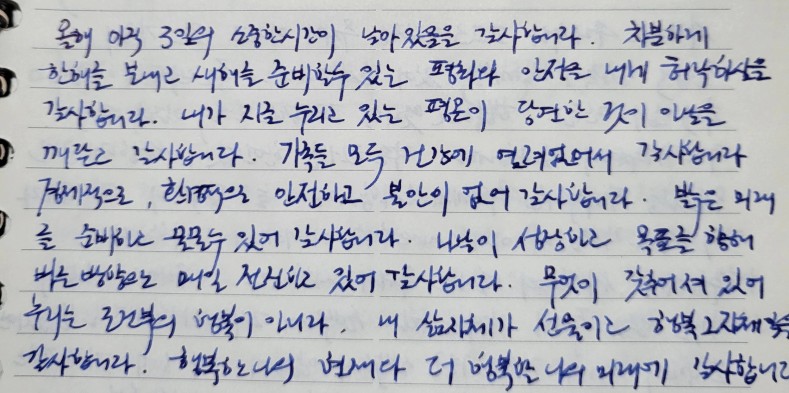 올해 아직 3일의 소중한시간이 남아있음을 감사합니다. 차분하게
한해를 보내고 새해를 준비할수 있는 평화와 안정을 내게 허락하심을
감사합니다. 내가 지금 누리고 있는 평온이 당연한 것이 아님을
깨닫고 감사합니다. 가족들 모두 건강에 염려없어서 감사합니다
경제적으로, 환경적으로 안전하고 불안이 없어 감사합니다. 밝은 미래
를 준비하고 꿈꿀수 있어 감사합니다. 나날이 성장하고 목표를 향해
바른방향으로 매일 전진하고 있어 감사합니다. 무엇이 갖추어져 있어
누리는 조건부의 행복이 아니라, 내 삶자체가 선물이고 행복 그자체
감사합니다. 행복한 나의 현재와 더 행복할 나의 미래에 감사합니다